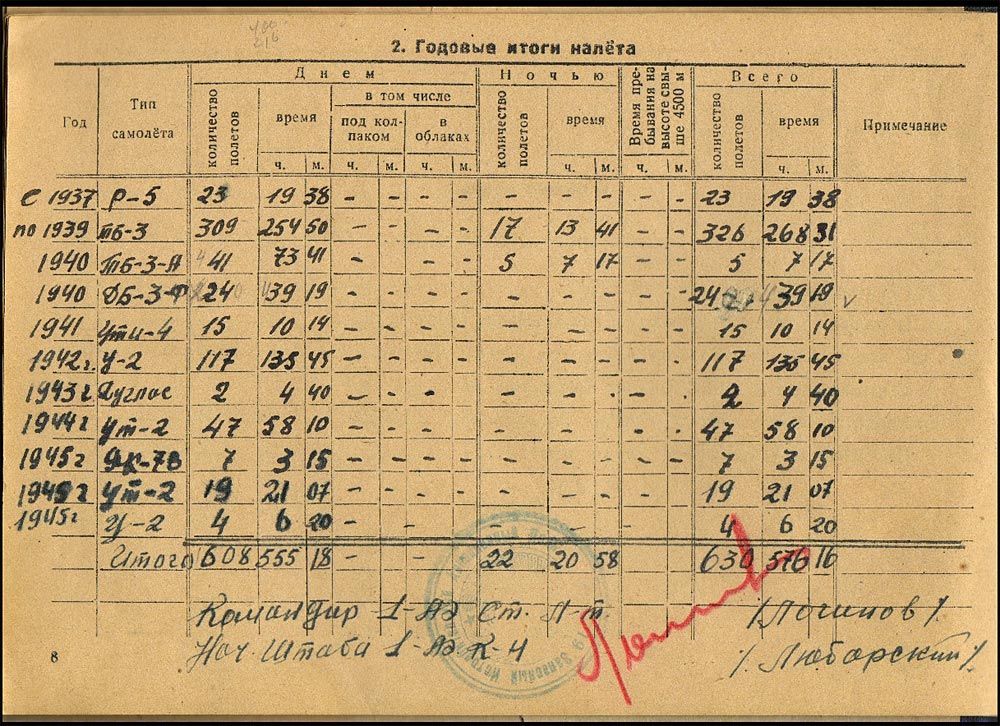 2. Годовые итоги налёта
Год Тип самолёта Днем Ночью Время пребывания на высоте свыше 4500 м Всего Примечание
количество полетов время в том числе количество полетов время количество полетов время
под колпаком в облаках
ч. м. ч. м. ч. м. ч. м. ч. м. ч. м.
с 1937 Р-5 23 19 38 - - - - - - - - - 23 19 38
по 1939 ТБ-3 309 254 50 - - - - 17 13 41 - - 326 268 31
1940 ТБ-3-А 41 73 41 - - - 5 7 17 - - 5 7 17
1940 ДБ-3-Ф 24 39 19 - - - - - - - - - 24 39 19 v
1941 УТИ-4 15 10 14 - - - - - - - - - 15 10 14
1942 г. У-2 117 135 45 - - - - - - - - - 117 135 45
1943 г Дуглас 2 4 40 - - - - - - - - 2 4 40
1944 г УТ-2 47 58 10 - - - - - - - - - 47 58 10
1945 г ЯК-7В 7 3 15 - - - - - - - - - 7 3 15
1945 г УТ-2 19 21 07 - - - - - - - - - 19 21 07
1945 г У-2 4 6 20 - - - - - 4 6 20
Итого 608 555 18 - - 22 20 58 630 576 16
Командир 1-АЭ Ст. Л-т. /Логинов/.
Нач. Штаба 1-АЭ К-Н /. Любарский/.
8